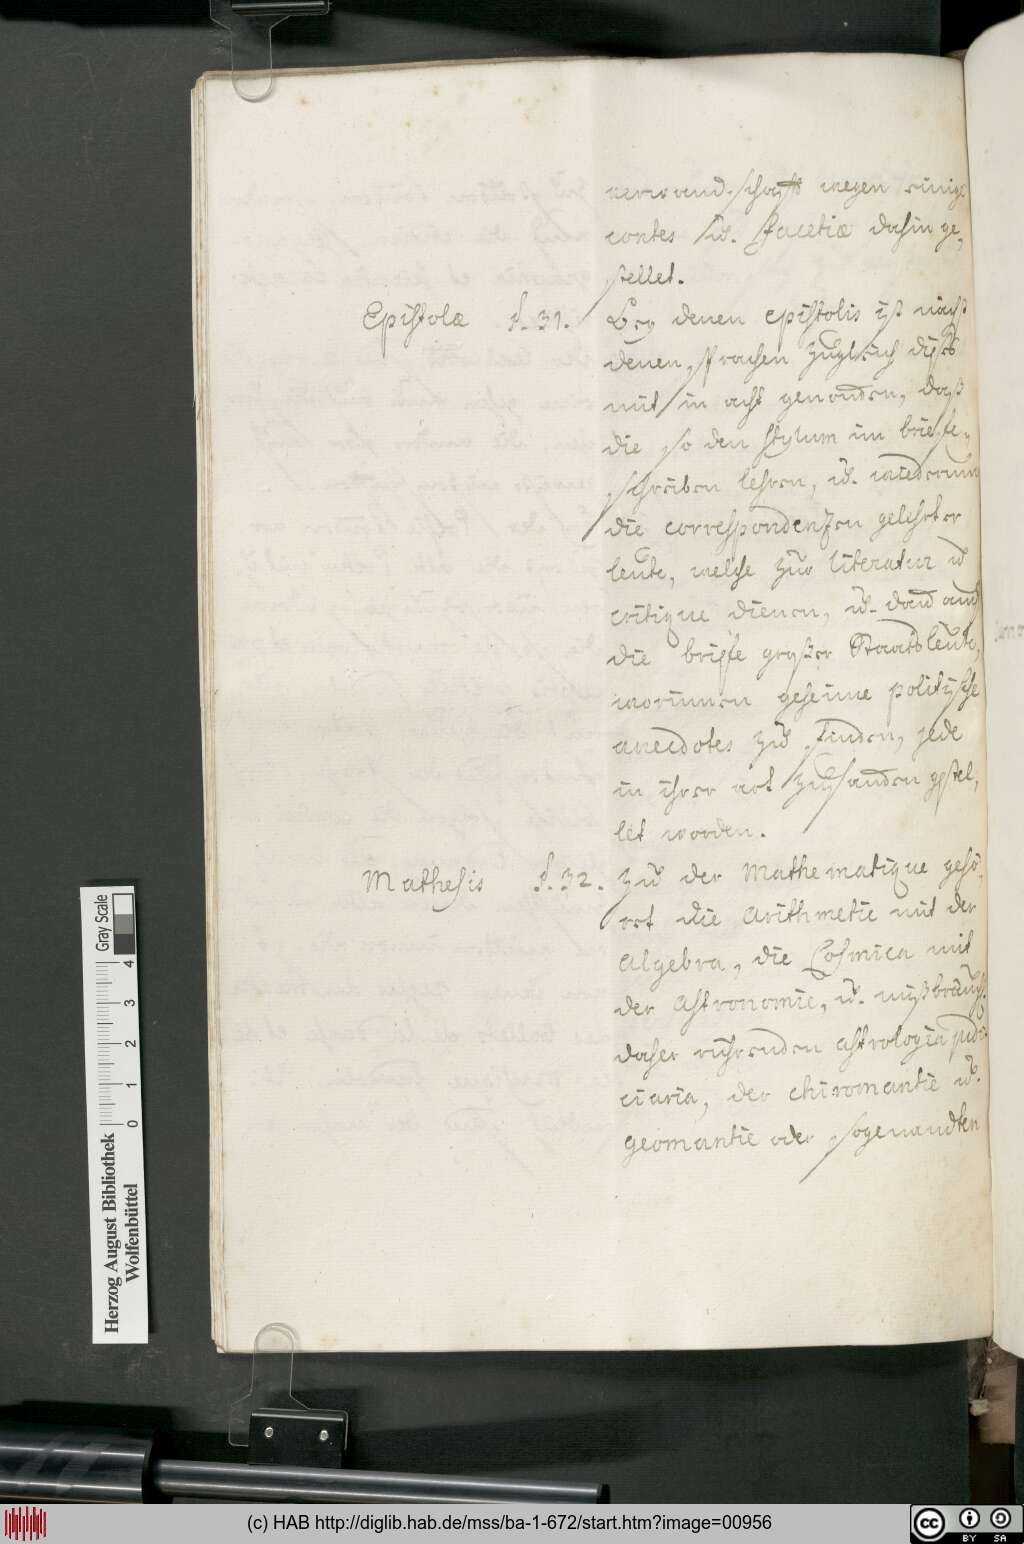 verwand.schafft wegen einige
contes u. Facetiæ dahin ge,
stellet.
Epistolæ §. 31. Bey denen epistolis ist nächst
denen sprachen zugleich dieses
mit in acht genommen, daß
die so den stylum im briefe,
schreiben lehren, u. wiederum
die correspondenzen gelehrter
leute, welche zur literatur u
critique dienen, u. dann auch
die brieffe großer Staatsleute,
worinnen geheime politische
anecdotes zu finden, jede
in ihrer art zusammen gestel,
let worden.
Mathesis §. 32. Zu der Mathematique gehö,
ret die Arithmetic mit der
Algebra, die Cosmica mit
der Astronomie, u. mißbräuchl.
daher rührenden Astrologia judi
ciaria, der chiromantie u.
geomantie oder sogenandten
Herzog August Bibliothek
Wolfenbüttel
0 1 2 3 4 Gray Scale
(c) HAB http://diglib.hab.de/mss/ba-1-672/start.htm?image=00956
cc BY SA